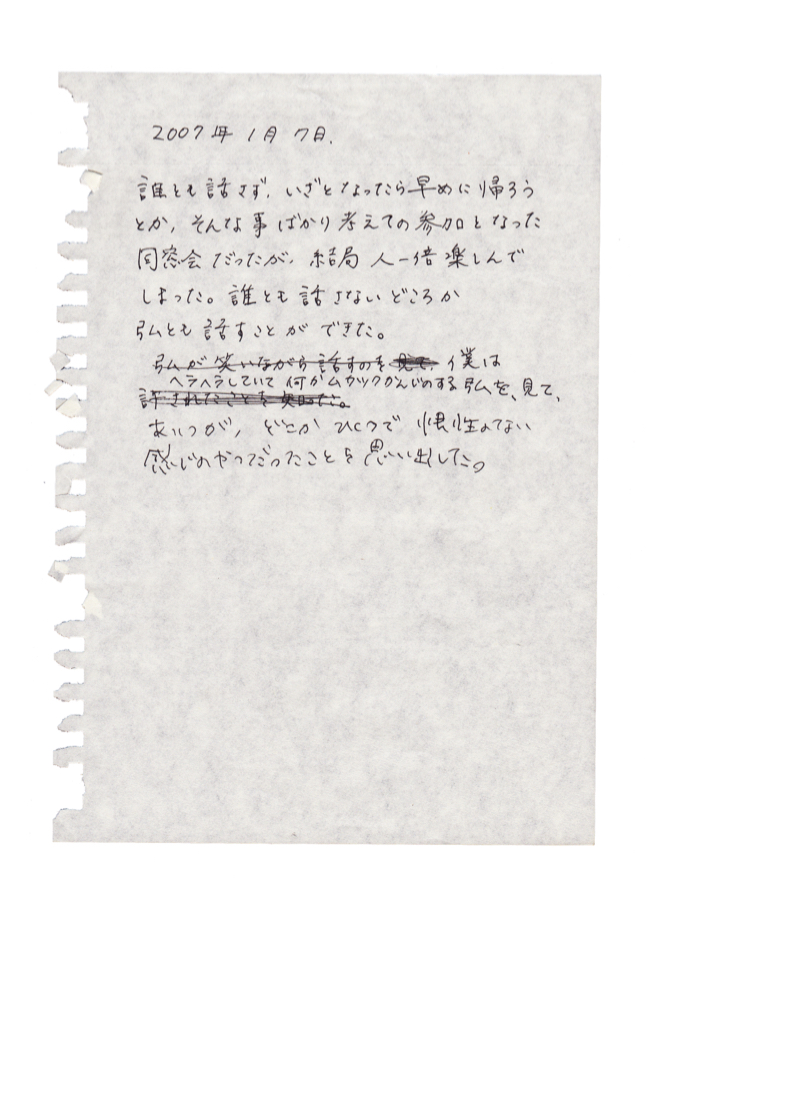 2007年 1月 7日.
誰とも話さず、いざとなったら早めに帰ろう
とか、そんな事ばかり考えての参加となった
同窓会だったが、結局 人一倍楽しんで
しまった。誰とも話さないどころか
弘とも話すことができた。
弘が笑いながら話すのを見て、僕は
ヘラヘラしていて何かムカツクかんじのする弘を、見て、
許されたことを
あいつが、どこか ひくつで 根性のてない
感じのやつだったことを思い出した。